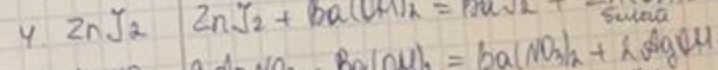 4 ZnJ2 ZnJ2 + Ba(OH)2 = BaJ2 +
Ba(OH)2 = Ba(NO3)2 + 2AgOH